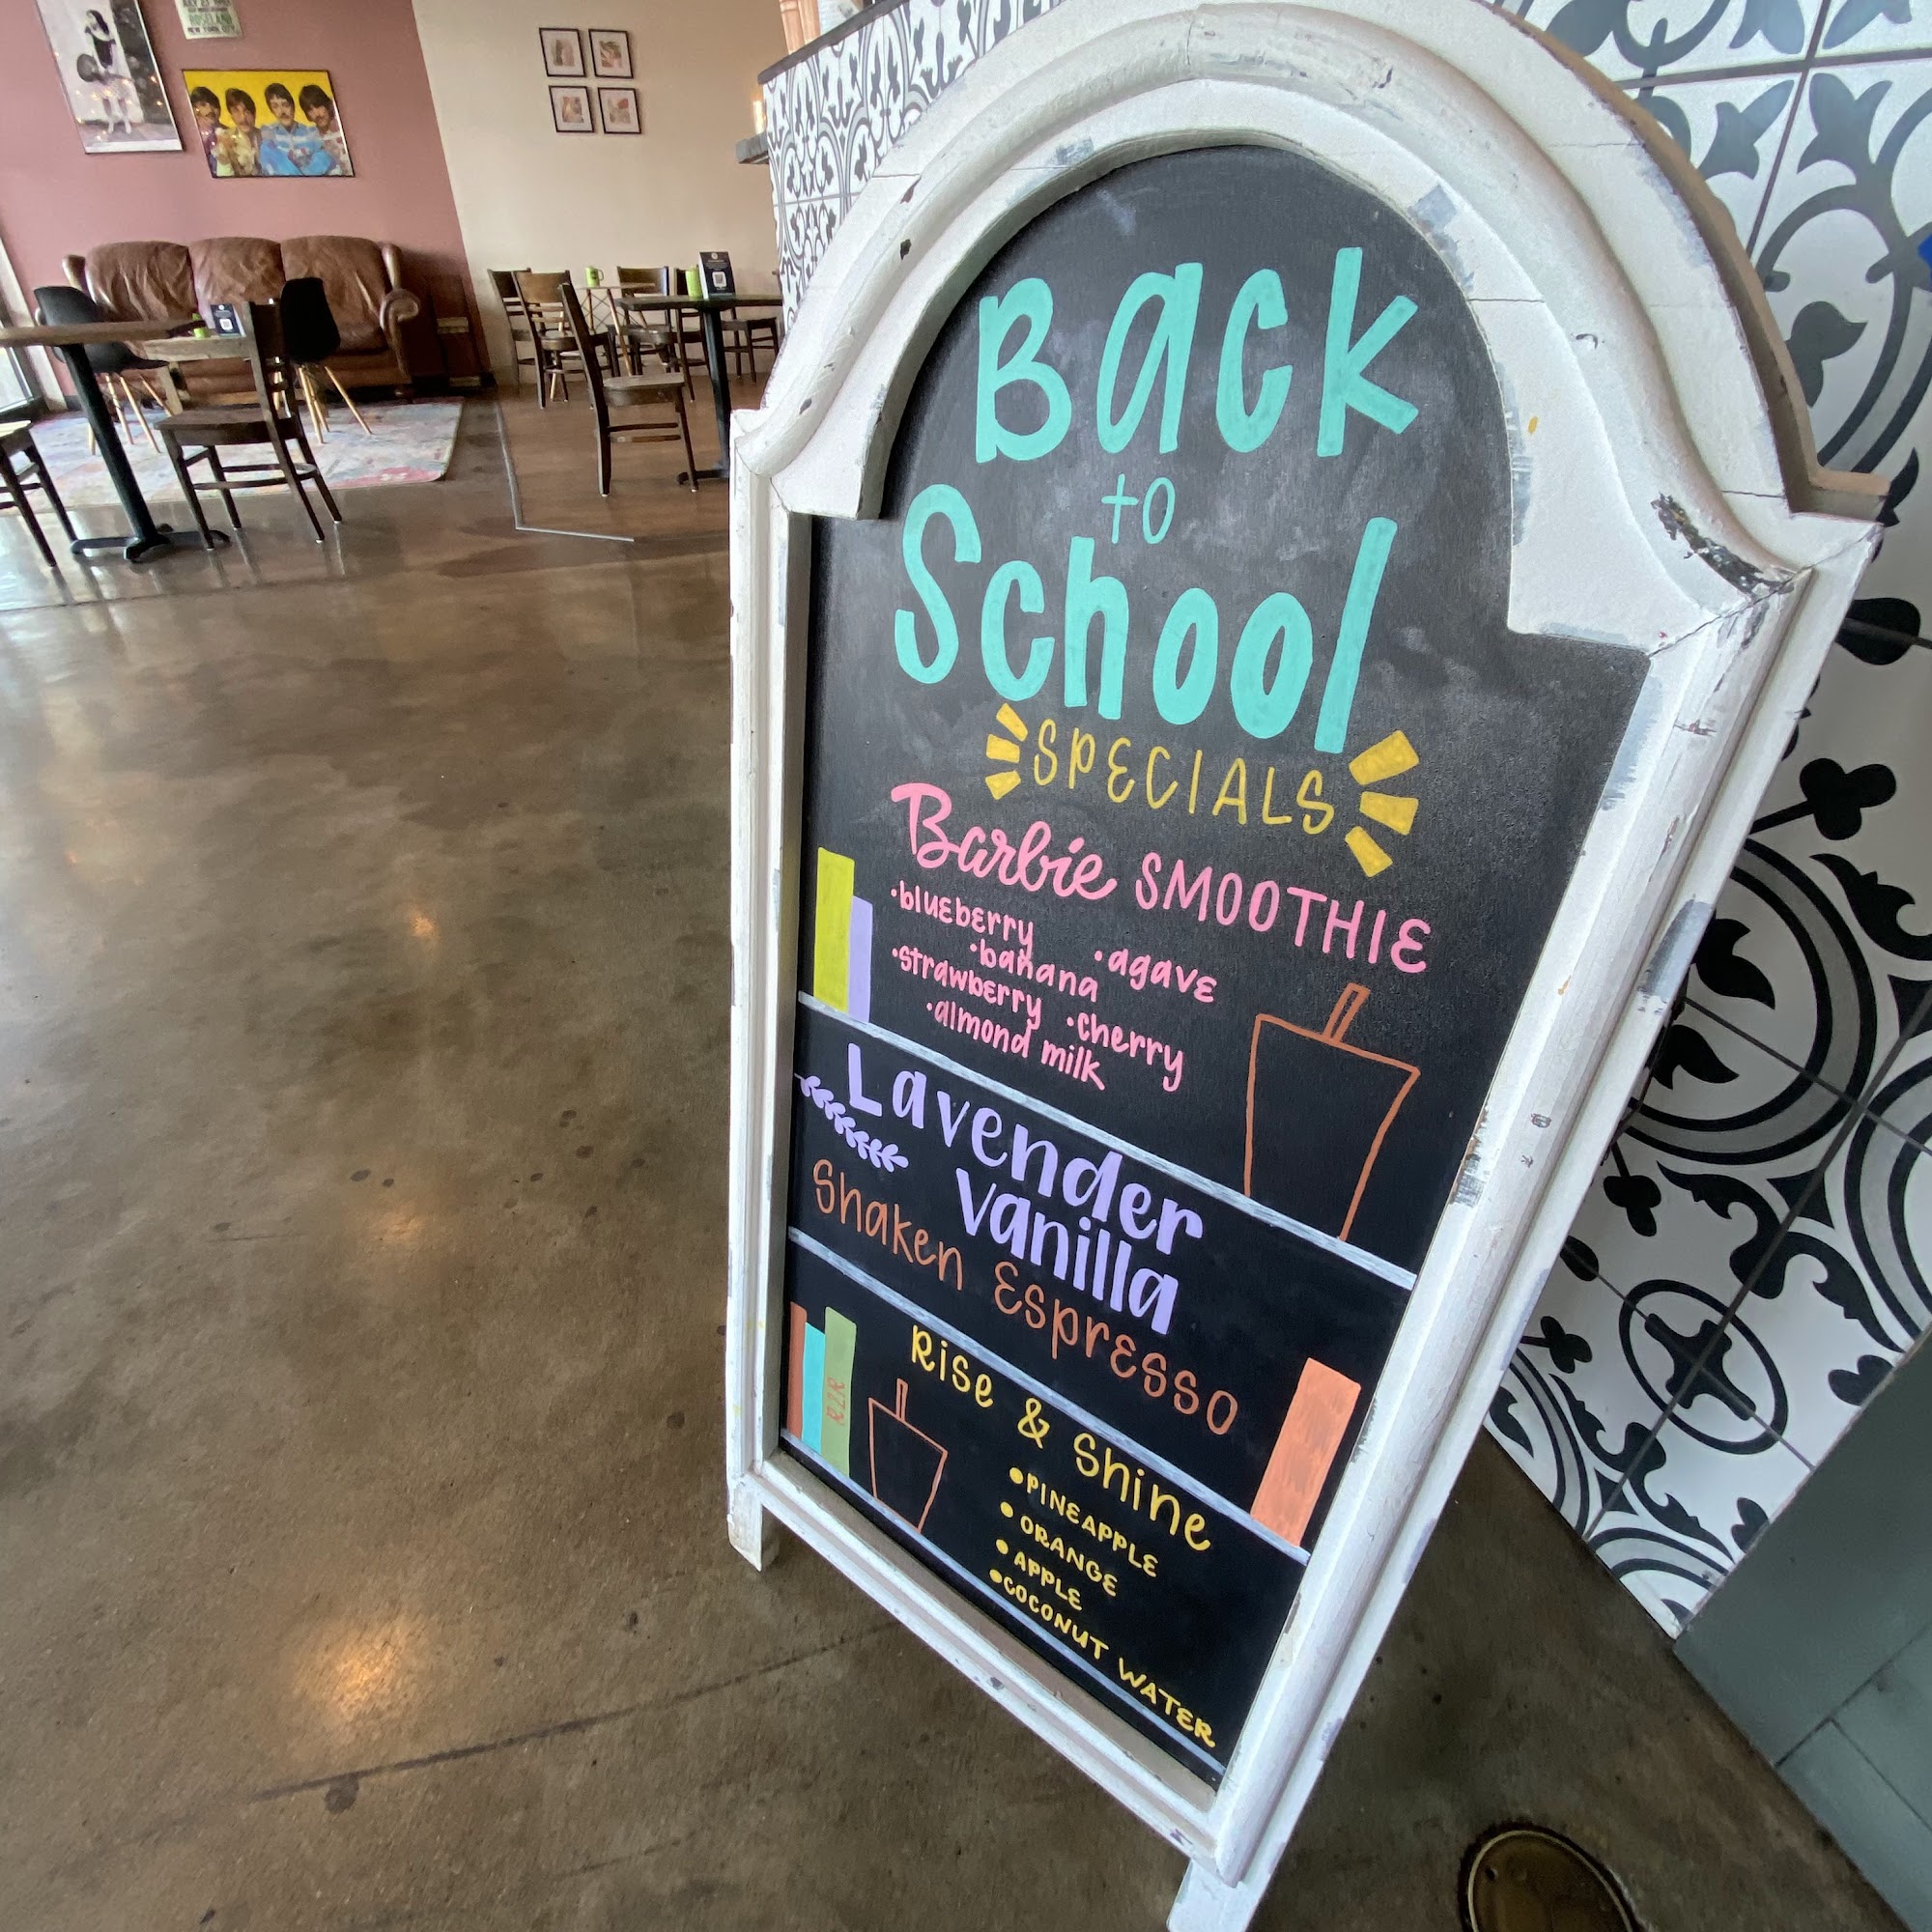 NEW YORK CITY
Back
to
School
SPECIALS
Barbie SMOOTHIE
•blueberry
•banana •agave
•strawberry •cherry
•almond milk
Lavender
Vanilla
Shaken Espresso
Rise & Shine
•PINEAPPLE
•ORANGE
•APPLE
•COCONUT WATER